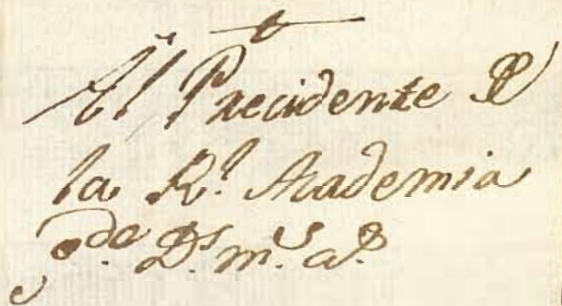 Al Precidente de
la Rl. Academia
gde. Ds. ms. as.